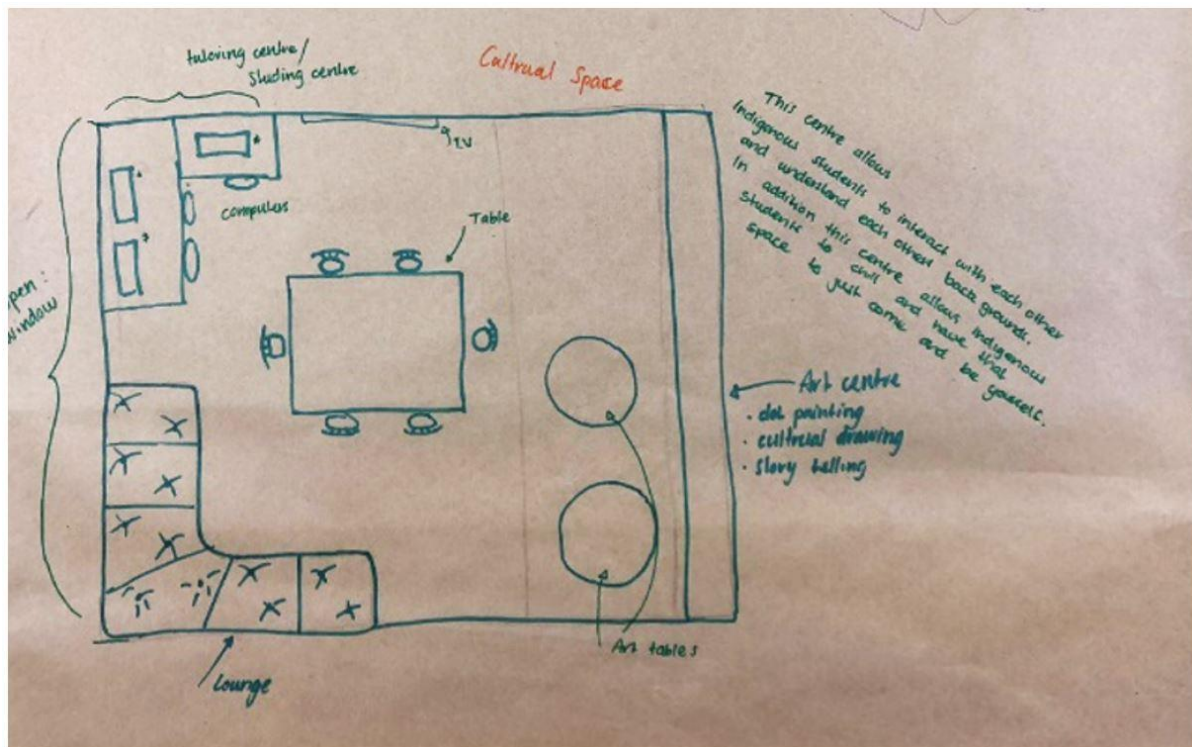 tutoring centre/
studing centre
Cultrual Space
T.V
computers
Table
pen :
window
This centre allows
Indigenous students to interact with each other
and understand each others back grounds.
In addition this centre allows indigenous
students to chill and have that
space to just come and be yourself.
Art centre
· dot painting
· cultrual drawing
· story telling
Art tables
Lounge